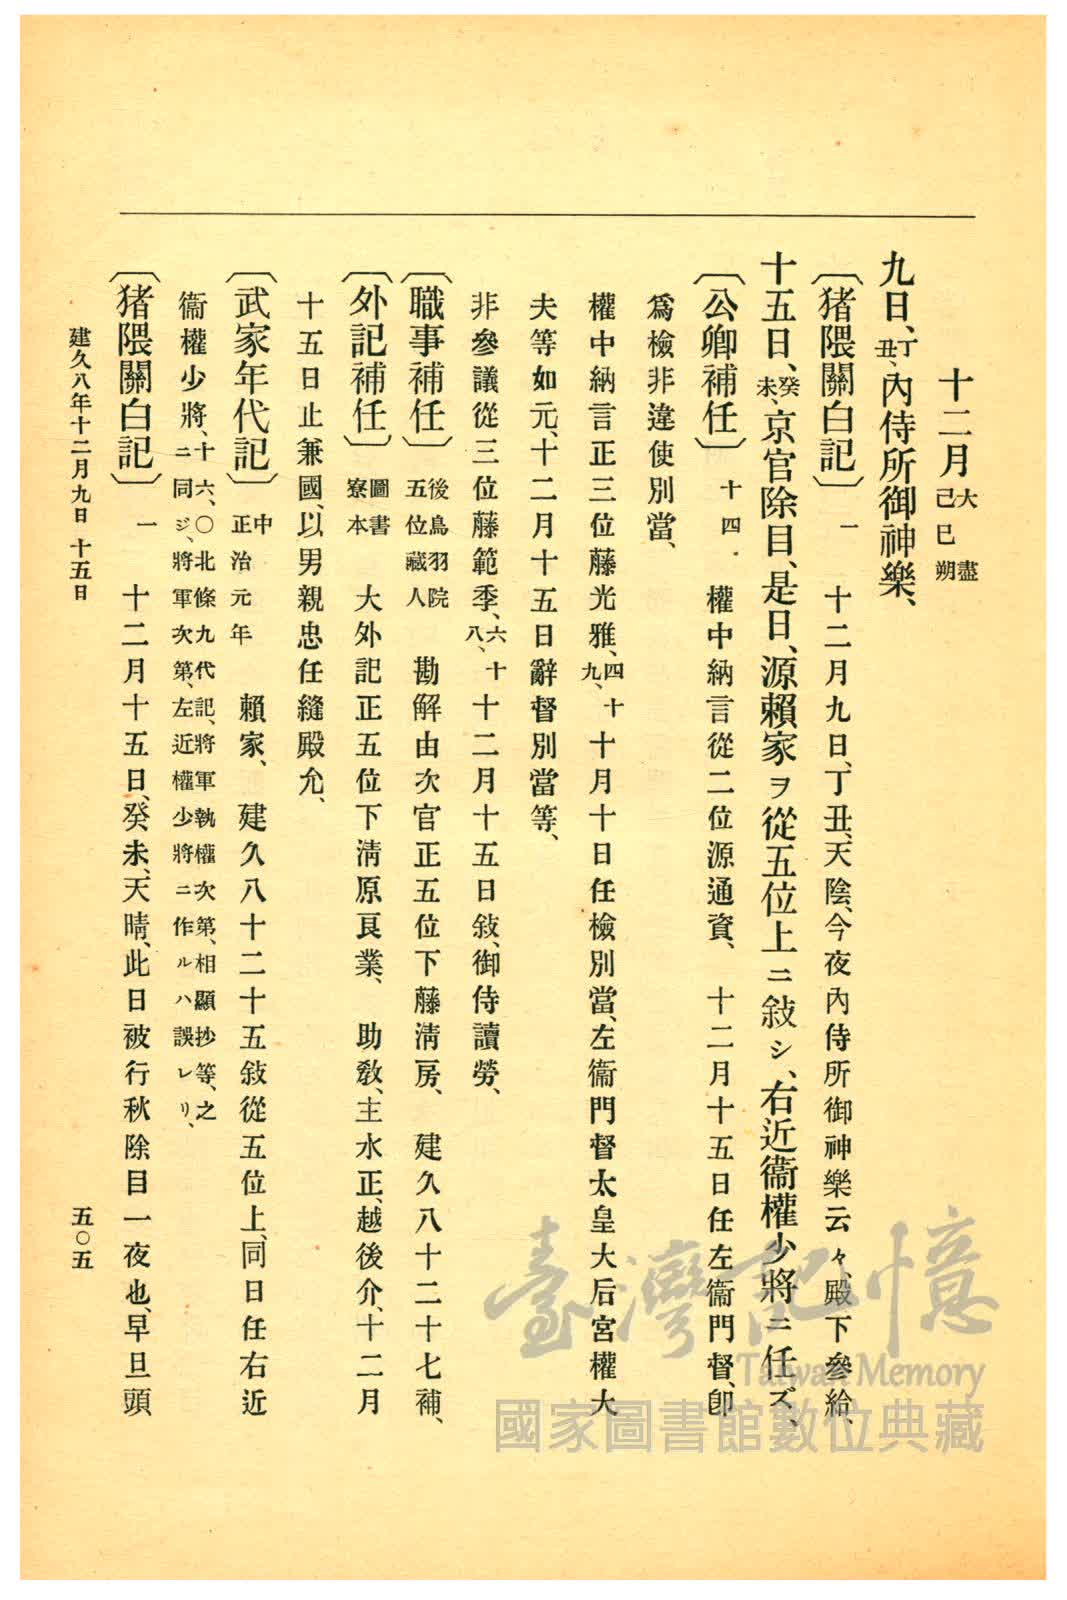 十二月大盡己巳朔
九日、丁丑、內侍所御神樂、
〔猪隈關白記〕一 十二月九日、丁丑、天陰、今夜內侍所御神樂云々、殿下參給、
十五日、癸未、京官除目、是日、源賴家ヲ從五位上ニ敍シ、右近衞權少將ニ任ズ、
〔公卿補任〕十四 權中納言從二位源通資、 十二月十五日任左衞門督、卽
爲檢非違使別當、
權中納言正三位藤光雅、四十九、 十月十日任檢別當、左衞門督太皇大后宮權大
夫等如元、十二月十五日辭督別當等、
非參議從三位藤範季、六十八、 十二月十五日敍、御侍讀勞、
〔職事補任〕後鳥羽院五位藏人 勘解由次官正五位下藤淸房、 建久八十二十七補、
〔外記補任〕圖書寮本 大外記正五位下淸原良業、 助敎、主水正、越後介、十二月
十五日止兼國、以男親忠任縫殿允、
〔武家年代記〕中正治元年 賴家、 建久八十二十五敍從五位上、同日任右近
衞權少將、十六、○北條九代記、將軍執權次第、相顯抄等、之ニ同ジ、將軍次第、左近權少將ニ作ルハ誤レリ、
〔猪隈關白記〕一 十二月十五日、癸未、天晴、此日被行秋除目一夜也、早旦頭
建久八年十二月九日 十五日
五〇五
臺灣記憶
Taiwan Memory
國家圖書館數位典藏